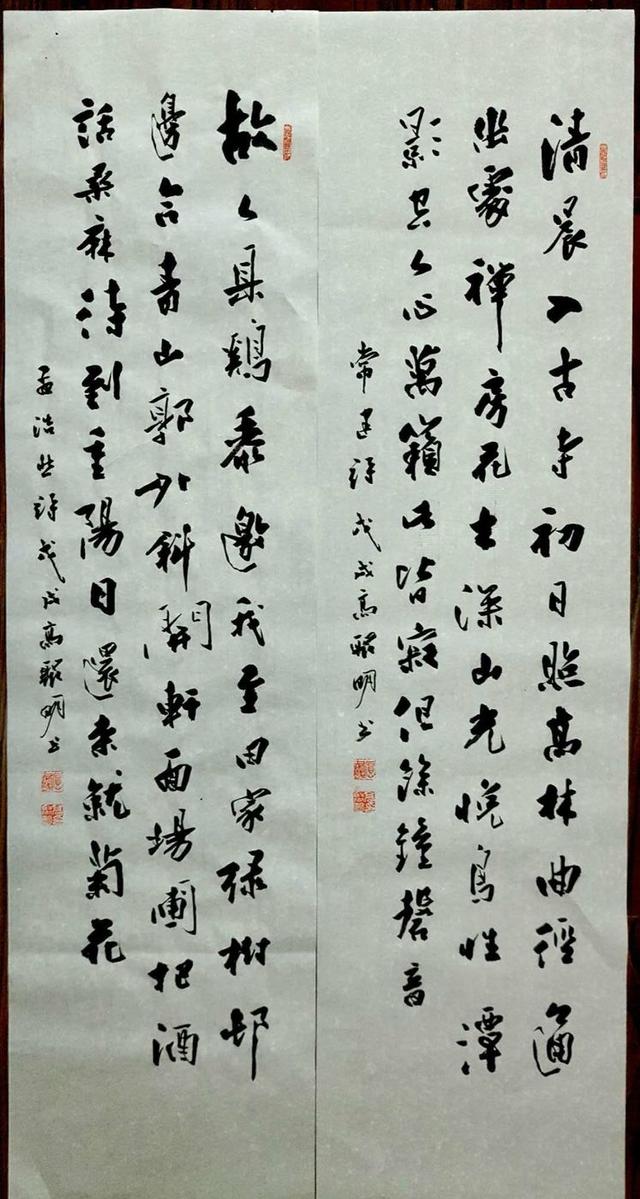 清晨入古寺初日照高林曲徑通
幽處禪房花木深山光悅鳥性潭
影空人心萬籟此皆寂但餘鐘磬音
常建詩戊戌高明书
故人具鷄黍邀我至田家緑樹邨
邊合青山郭外斜開軒面場圃把酒
話桑麻待到重陽日還來就菊花
孟浩然詩戊戌高明书